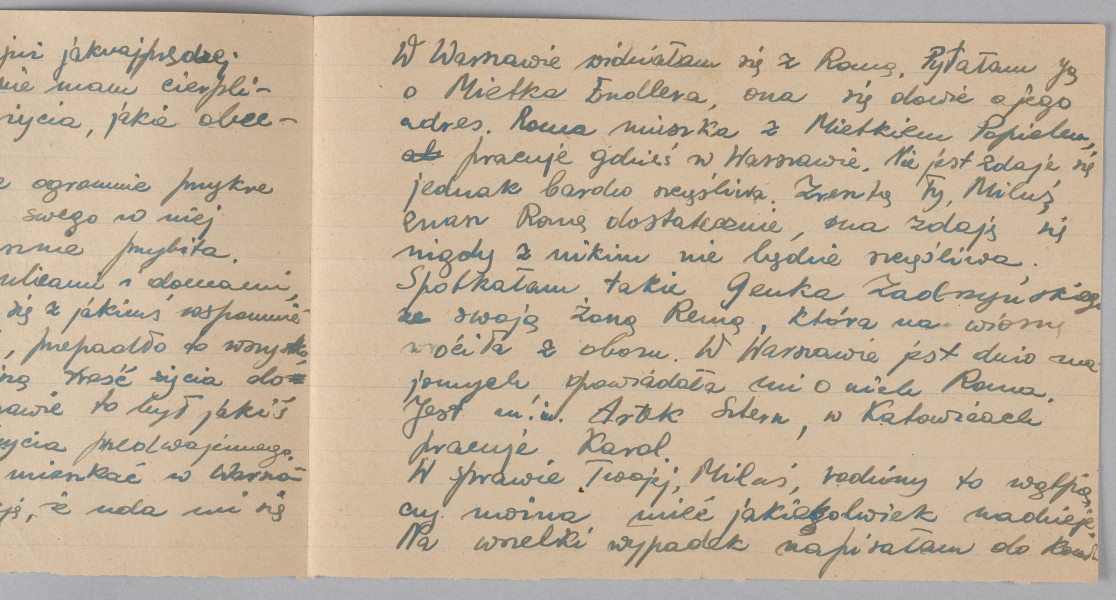 już jaknajprędzej
nie mam cierpli-
życia, jakie obec-
ogromnie przykre
swego w niej
przybita.
ulicami i domami,
się z jakimś wspomnie-
, przepadło to wszystko,
treść życia do-
to był jakiś
życia przedwojennego.
mieszkać w Warsza-
że uda mi się
W Warszawie widziałam się z Romą. Pytałam ją
o Mietka Endlera, ona się dowie o jego
adres. Roma mieszka z Mietkiem Popielem,
pracuje gdzieś w Warszawie. Nie jest zdaje się
jednak bardzo szczęśliwa. Zresztą Ty, Miluś,
znasz Romę dostatecznie, ona zdaję się
nigdy z nikim nie będzie szczęśliwa.
Spotkałam także Genka Zadrzyńskiego
ze swoją żoną Remą, która na wiosnę
wróciła z obozu. W Warszawie jest dużo zna-
jomych opowiadała mi o nich Roma.
Jest m.in. Artek Stern, w Katowicach
pracuje Karol.
W sprawie Twojej, Miluś, rodziny to wątpię
czy można mieć jakiekolwiek nadzieje.
Na wszelki wypadek napisałam do